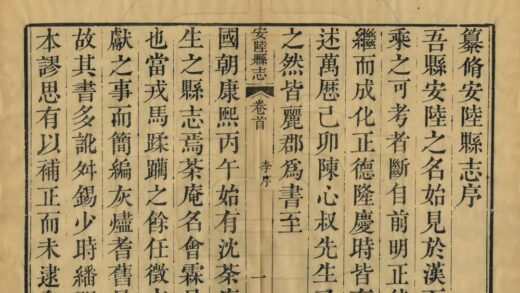 纂脩安陸縣志序
吾縣安陸之名始見於漢
乘之可考者斷自前明正
繼而成化正德隆慶時皆
述萬厯己卯陳心叔先生
之然皆麗郡爲書至
安陸縣志 卷首 李序 一
國朝康熙丙午始有沈茶
生之縣志焉茶庵名會霖
也當戎馬蹂躪之餘任徵
獻之事而簡編灰燼耆舊
故其書多訛舛錫少時繙
本謬思有以補正而未逮